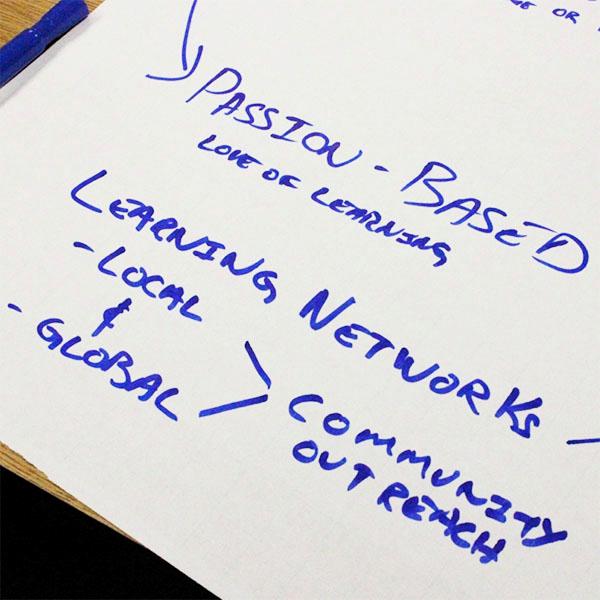 OR
PASSION - BASED
LOVE OF LEARNING
LEARNING NETWORKS
- LOCAL
&
- GLOBAL
COMMUNITY
OUTREACH